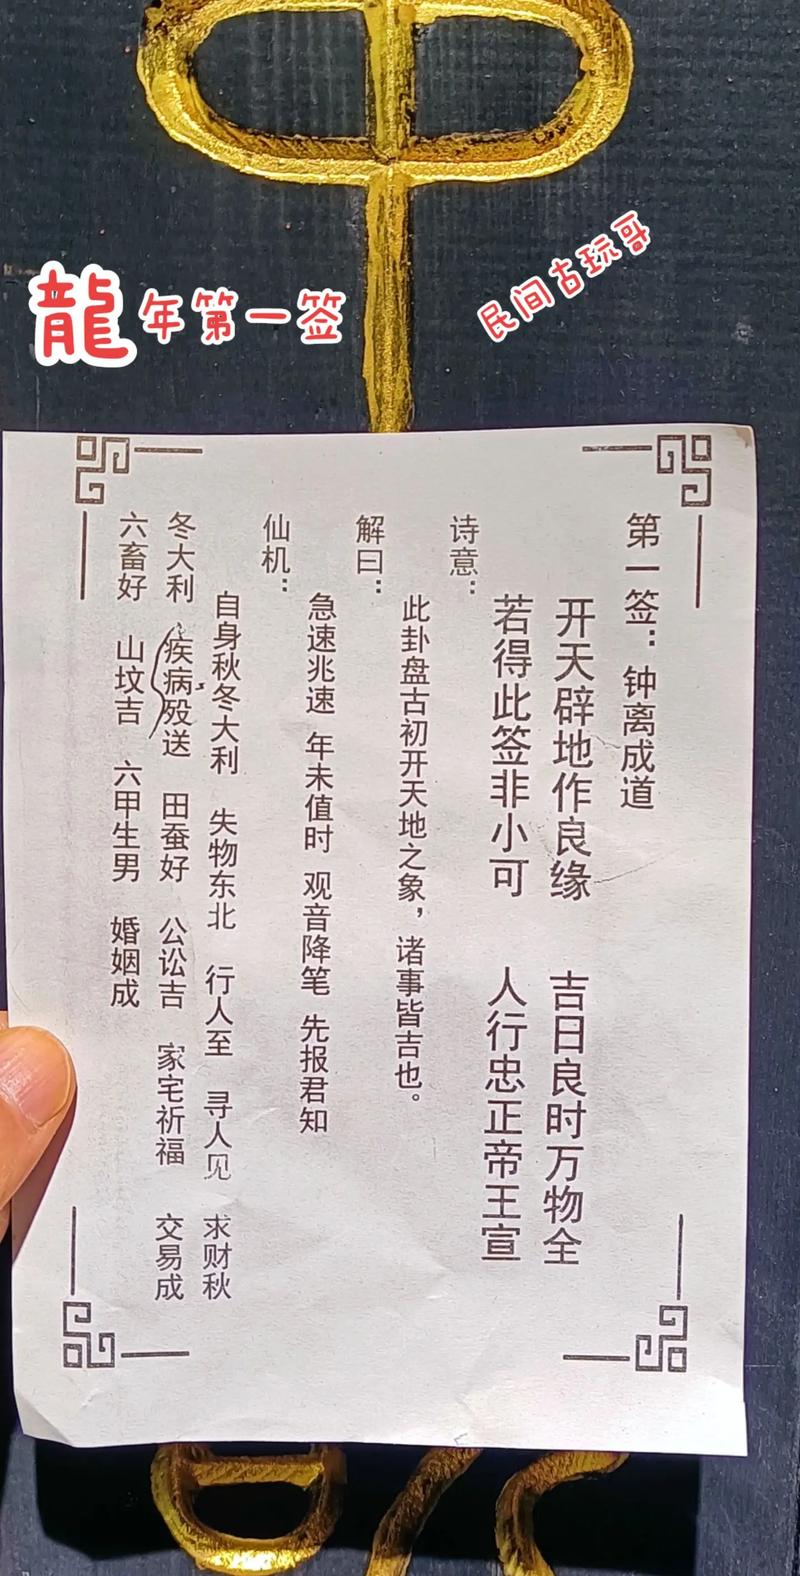 龍年第一签
民间古玩哥
第一签：钟离成道
开天辟地作良缘 吉日良时万物全
若得此签非小可 人行忠正帝王宣
诗意：
此卦盘古初开天地之象，诸事皆吉也。
解曰：
急速兆速 年未值时 观音降笔 先报君知
仙机：
自身秋冬大利 失物东北 行人至 寻人见 求财秋
冬大利 疾病殁送 田蚕好 公讼吉 家宅祈福 交易成
六畜好 山坟吉 六甲生男 婚姻成